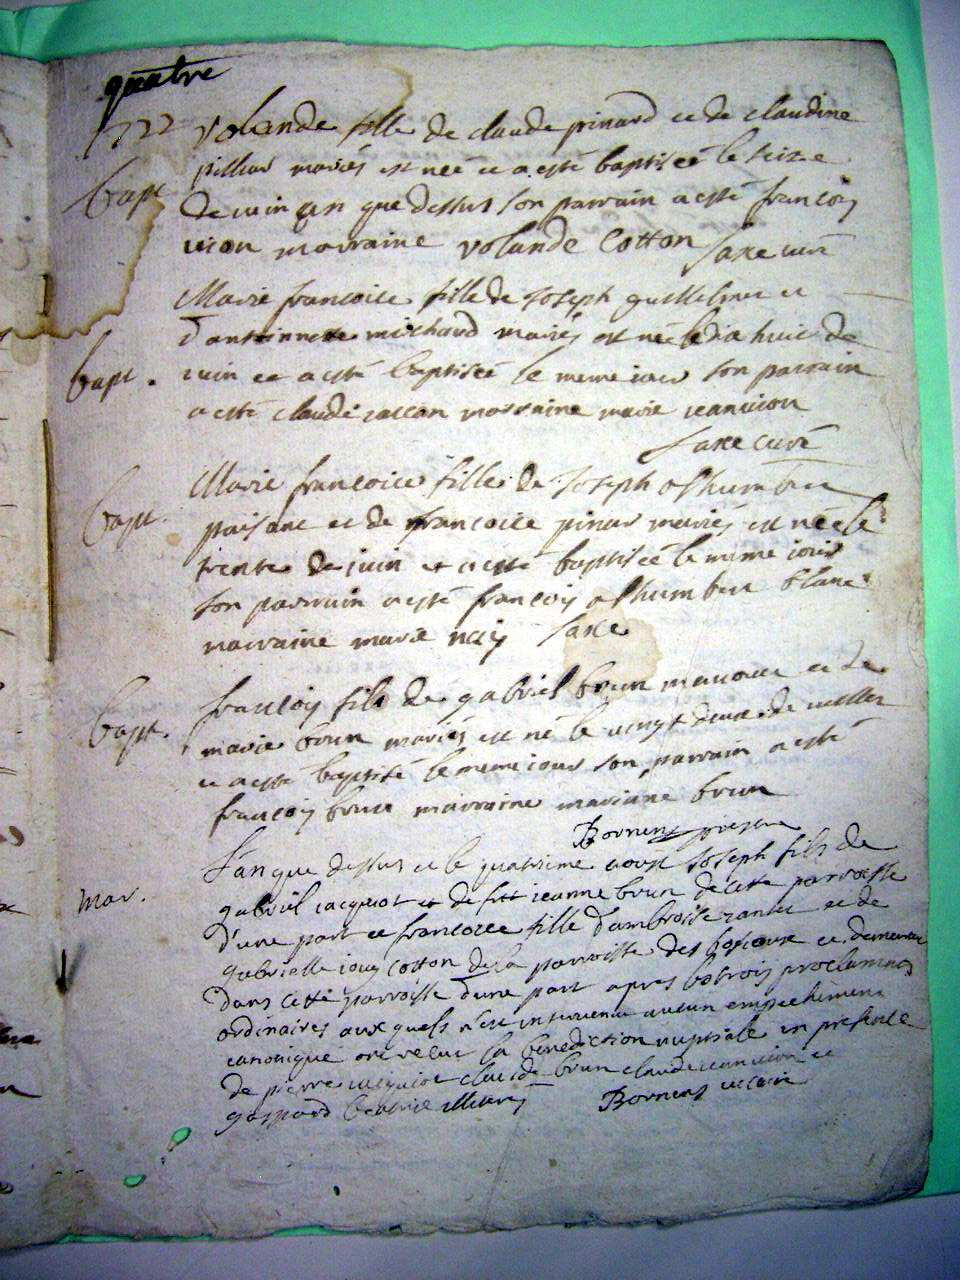 quatre
1722 volande fille de claude pinard et de claudine
bapt mariés est neé et a esté baptiseé le seize
de iuin an que dessus son parrain a esté francois
marraine volande Cotton saxe curé
Marie francoise fille de Joseph et
d'antoinette michaud mariés est neé le dix huit de
bapt. iuin et a esté baptiseé le meme iour son parrain
a esté claude marraine marie ieanuion
saxe curé
Marie francoise fille de Joseph alhumbert
bapt. paisant et de francoise pinar mariés est neé le
trente de iuin et a esté baptiseé le meme iour
son parrain a esté francois alhumbert blanc
marraine marie saxe
francois fils de gabriel brun et de
bapt. marie brun mariés est né le vingt deux de
et a esté baptisé le meme iour son parrain a esté
francois brun marraine mariane brun
Bornens
L'an que dessus et le quatrieme aoust Joseph fils de
mar. gabriel iacquiot et de ieanne brun de cette parroisse
d'une part et francoise fille d'ambroise et de
gabrielle Cotton de la parroisse des et
dans cette parroisse d'une part apres les trois proclammes
ordinaires aux quels n'est intervenu aucun empechement
canonique ont recut la benediction nuptiale en presence
de pierre iacquiot claude brun claude ieanuion et
gaspard Bornens vicaire